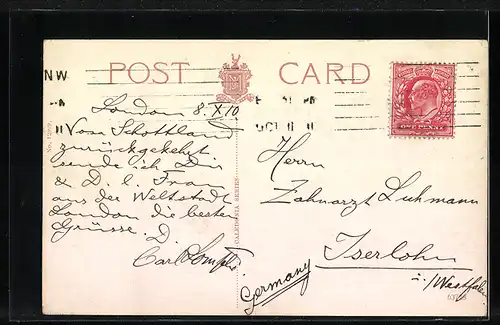 POST CARD
NW
OCT 11 11
ONE PENNY
London 8.X.10
Von Schottland
zurückgekehrt
sende ich Dir
& D. l. Frau
aus der Weltstadt
London die besten
Grüsse. D.
Carl
CALEDONIA SERIES
Herrn
Zahnarzt Luhmann
Iserlohn
i./Westfalen
Germany